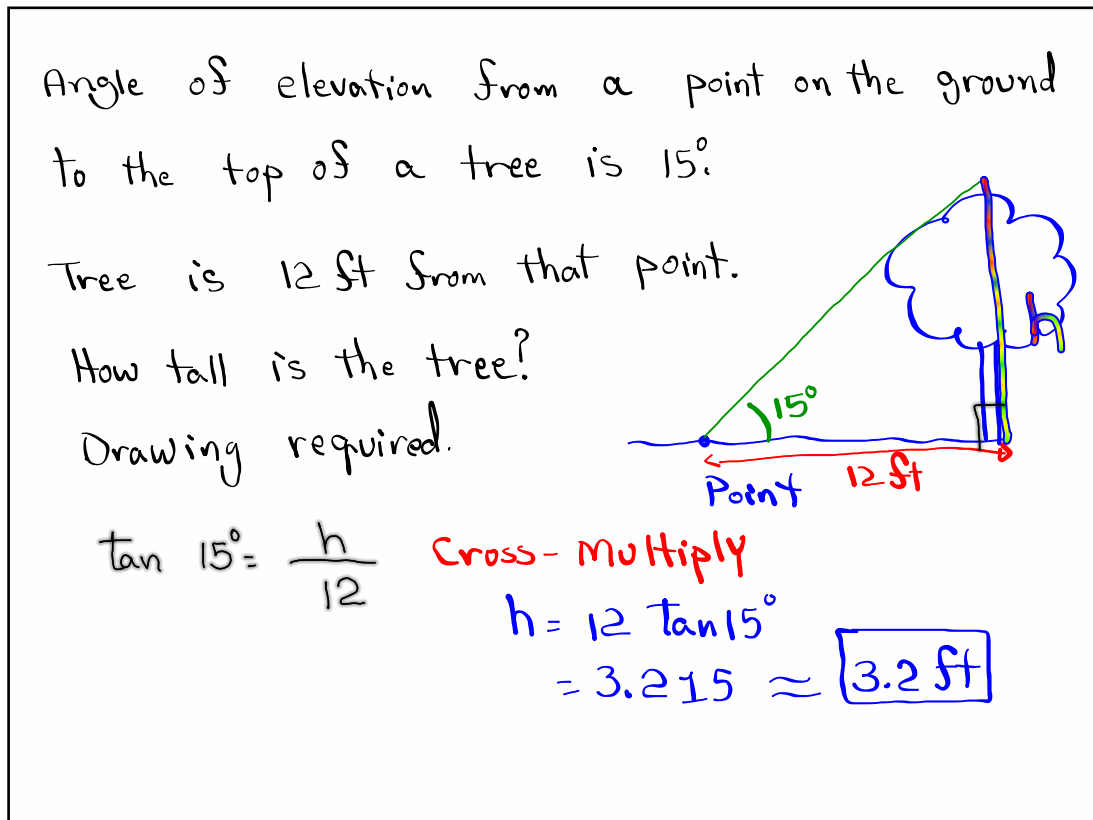 Angle of elevation from a point on the ground
to the top of a tree is 15°.
Tree is 12 ft from that point.
How tall is the tree?
Drawing required.
h
15°
12 ft
Point
tan 15° = h/12 Cross-Multiply
h = 12 tan 15°
= 3.215 ≈ 3.2 ft